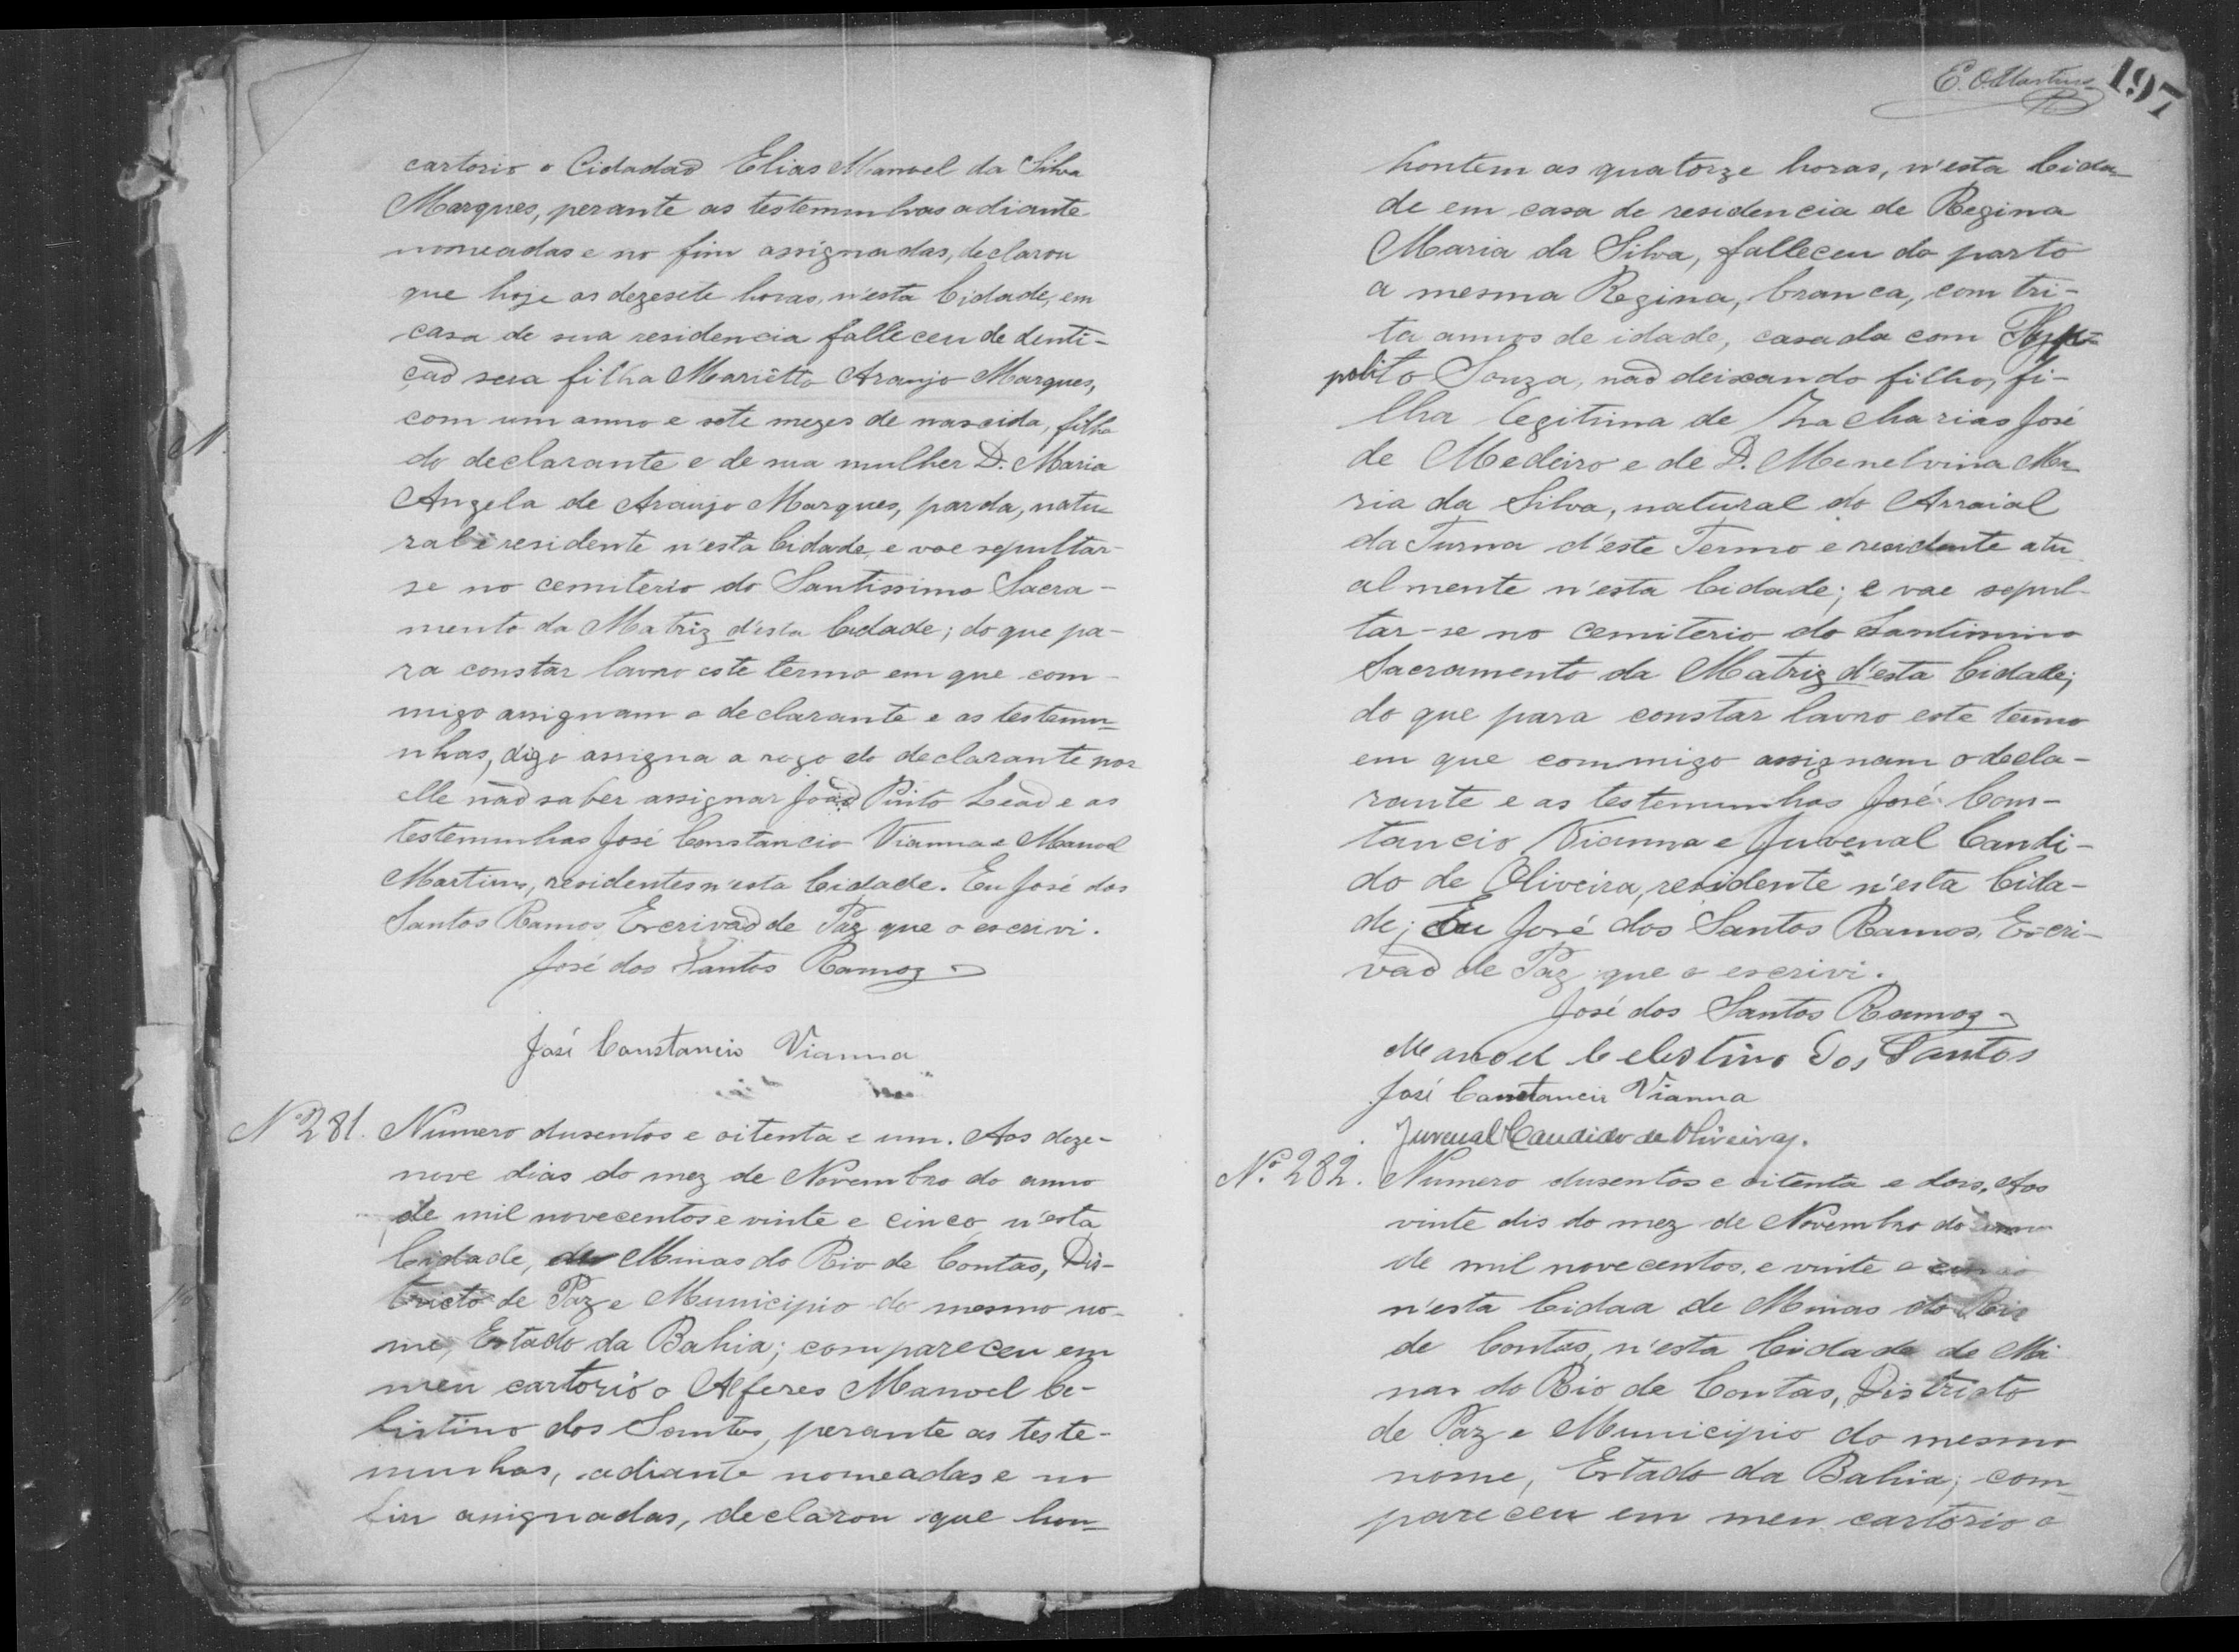 cartorio o Cidadaõ Elias Manoel da Silva
Marques, perante as testemunhas adiante
nomeadas e no fim assignadas, declarou
que hoje as dezesete horas, n'esta Cidade, em
casa de sua residencia falleceu de denti-
çaõ sua filha Mariêtta Araujo Marques,
com um anno e sete mezes de nascida, filha
do declarante e de sua mulher D. Maria
Angela de Araujo Marques, parda, natu-
ral e residente n'esta Cidade, e vae sepultar-
se no cemiterio do Santissimo Sacra-
mento da Matriz d'esta Cidade; do que pa-
ra constar lavro este termo em que com-
migo assignam o declarante e as testemu-
nhas, digo assigna a rogo do declarante por
elle naõ saber assignar Joaõ Pinto Leaõ e as
testemunhas José Constancio Vianna e Manoel
Martins, residentes n'esta Cidade. Eu José dos
Santos Ramos Escrivaõ de Paz que o escrivi.
José dos Santos Ramos
José Constancio Vianna
Nº 281. Numero dusentos e oitenta e um. Aos deze-
nove dias do mez de Novembro do anno
de mil novecentos e vinte e cinco n'esta
Cidade, de Minas do Rio de Contas, Dis-
tricto de Paz e Municipio do mesmo no-
me, Estado da Bahia; compareceu em
meu cartorio o Alferes Manoel Ce-
listino dos Santos, perante as teste-
munhas, adiante nomeadas e no
fim assignadas, declarou que hon-
E. O. Martins
197
hontem as quatorze horas, n'esta Cida-
de em casa de residencia de Regina
Maria da Silva, falleceu do parto
a mesma Regina, branca, com tri-
ta annos de idade, casada com Hyp-
polito Souza, naõ deixando filho, fi-
lha legitima de Zacharias José
de Medeiro e de D. Menelvina Ma-
ria da Silva, natural do Arraial
da Furna d'este Termo e residente atu-
almente n'esta Cidade; e vae sepul-
tar-se no cemiterio do Santissimo
Sacramento da Matriz d'esta Cidade;
do que para constar lavro este termo
em que commigo assignam o decla-
rante e as testemunhas José Cons-
tancio Vianna e Juvenal Candi-
do de Oliveira, residente n'esta Cida-
de; Eu José dos Santos Ramos, Escri-
vaõ de Paz que o escrivi.
José dos Santos Ramos
Manoel Celestino Dos Santos
José Constancio Vianna
Juvenal Candido de Oliveira.
Nº. 282. Numero dusentos e oitenta e dois. Aos
vinte dis do mez de Novembro do anno
de mil novecentos, e vinte e cinco
n'esta Cidaa de Minas do Rio
de Contas, n'esta Cidade de Mi
nas do Rio de Contas, Districto
de Paz e Municipio do mesmo
nome, Estado da Bahia; com-
pareceu em meu cartorio o